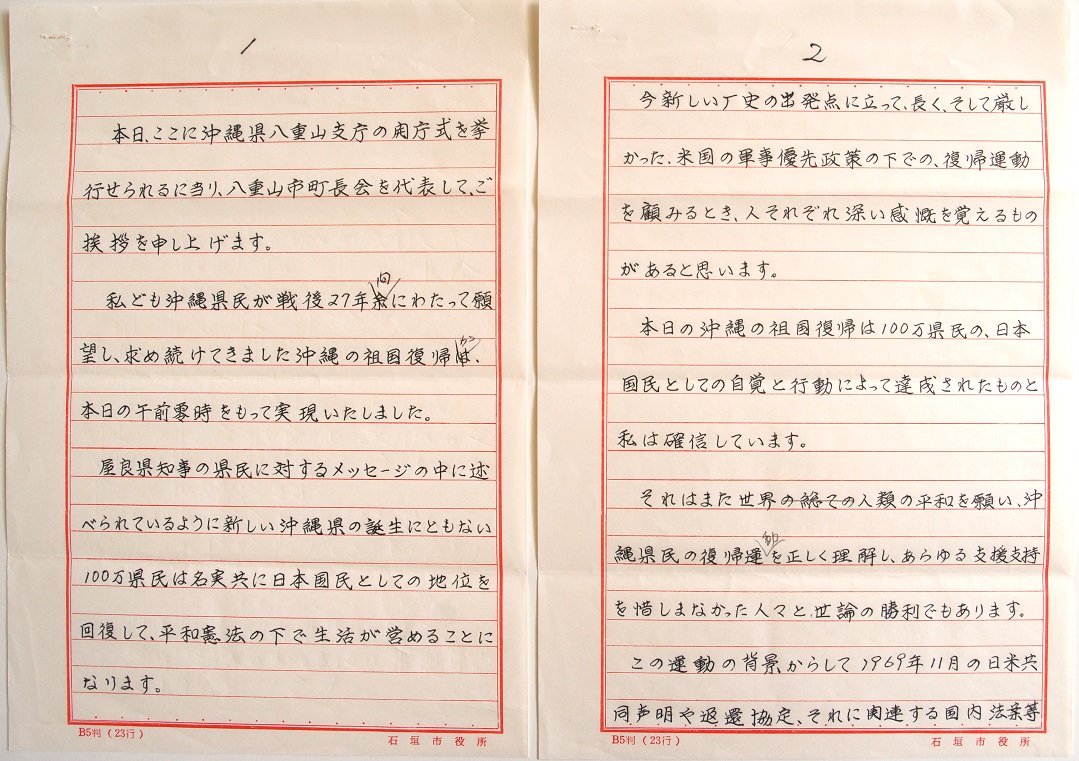 1
本日、ここに沖縄県八重山支庁の開庁式を挙
行せられるに当り、八重山市町長会を代表して、ご
挨拶を申し上げます。
私ども沖縄県民が戦後27年間にわたって願
望し、求め続けてきました沖縄の祖国復帰が、
本日の午前零時をもって実現いたしました。
屋良県知事の県民に対するメッセージの中に述
べられているように新しい沖縄県の誕生にともない
100万県民は名実共に日本国民としての地位を
回復して、平和憲法の下で生活が営めることに
なります。
B5判(23行)
石垣市役所
2
今新しい厂史の出発点に立って、長く、そして厳し
かった、米国の軍事優先政策の下での、復帰運動
を顧みるとき、人それぞれ深い感慨を覚えるもの
があると思います。
本日の沖縄の祖国復帰は100万県民の、日本
国民としての自覚と行動によって達成されたものと
私は確信しています。
それはまた世界の総ての人類の平和を願い、沖
縄県民の復帰運動を正しく理解し、あらゆる支援支持
を惜しまなかった人々と世論の勝利でもあります。
この運動の背景からして1969年11月の日米共
同声明や返還協定、それに関連する国内法案等
B5判(23行)
石垣市役所